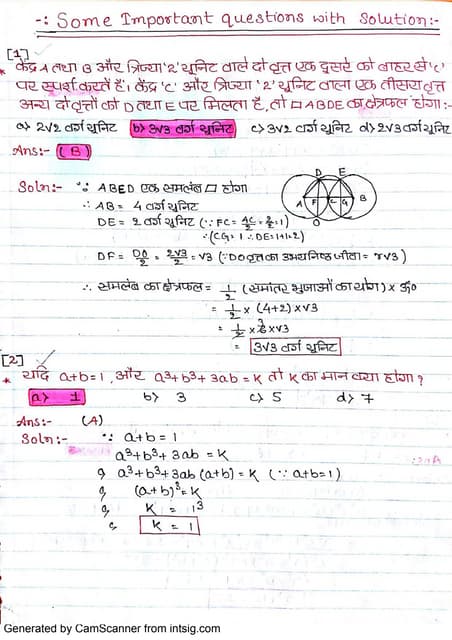 -: Some Important questions with Solution:-
[1]
* केंद्र A तथा B और त्रिज्या '2' यूनिट वाले दो वृत्त एक दुसरे को बाहर से 'C'
पर स्पर्श करतें हैं। केंद्र 'C' और त्रिज्या '2' यूनिट वाला एक तीसरा वृत्त
अन्य दो वृत्तों को D तथा E पर मिलता है, तो □ ABDE का क्षेत्रफल होगा:-
a) 2√2 वर्ग यूनिट b) 3√3 वर्ग यूनिट c) 3√2 वर्ग यूनिट d) 2√3 वर्ग यूनिट
Ans:- (B)
Soln:- ∵ ABED एक समलंब □ होगा
∴ AB = 4 वर्ग यूनिट
DE = 2 वर्ग यूनिट (∵ FC = AC/2 = 2/2 = 1)
∴ (CG = 1 ∴ DE = 1+1 = 2)
DF = DO/2 = 2√3/2 = √3 (∵ DO वृत्त का उभयनिष्ठ जीवा = r√3)
∴ समलंब का क्षेत्रफल = 1/2 (समांतर भुजाओं का योग) × ऊँ०
= 1/2 × (4+2) × √3
= 1/2 × 6 × √3
= 3√3 वर्ग यूनिट
D E
A F C G B
O
[2]
* यदि a+b=1, और a³+b³+3ab = K तो K का मान क्या होगा ?
a) 1 b) 3 c) 5 d) 7
Ans:- (A)
Soln:- ∵ a+b = 1
a³+b³+3ab = K
a³+b³+3ab (a+b) = K (∵ a+b=1)
(a+b)³ = K
K = 1³
K = 1
Generated by CamScanner from intsig.com